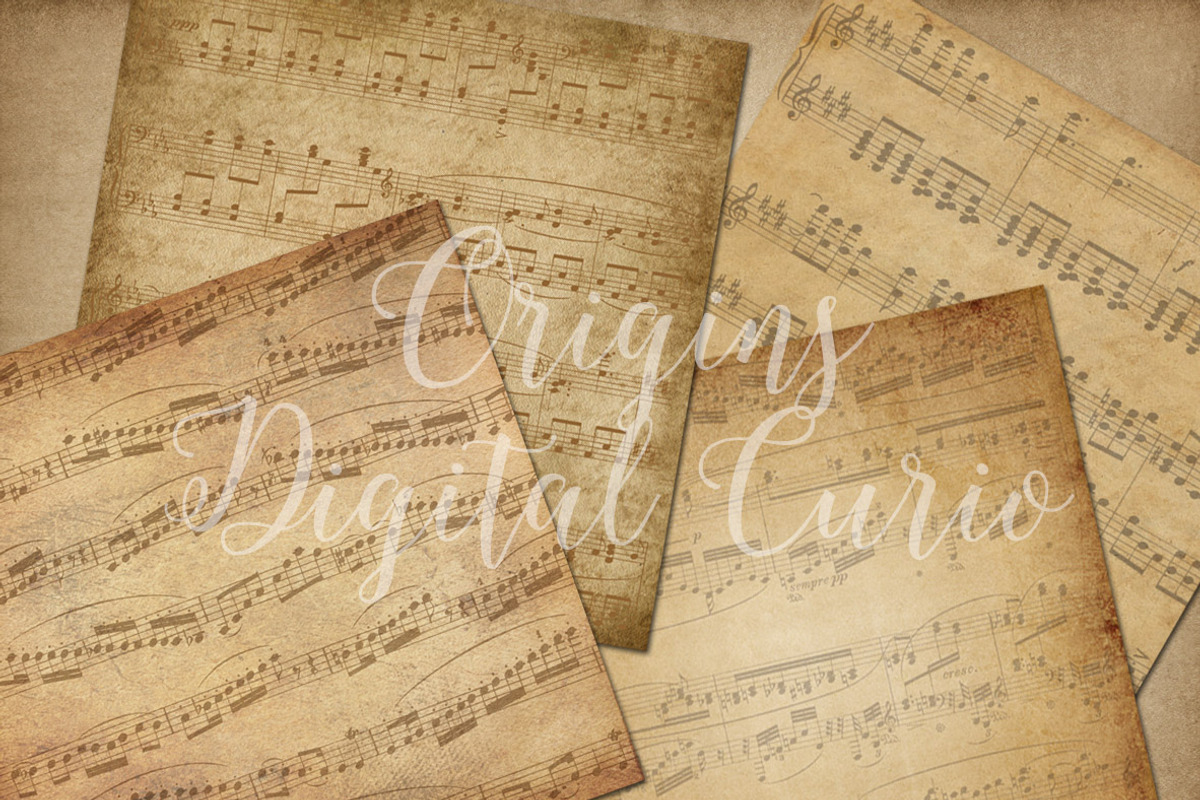 ppp
Origins
Digital Curio
p
sempre pp
cresc.
f